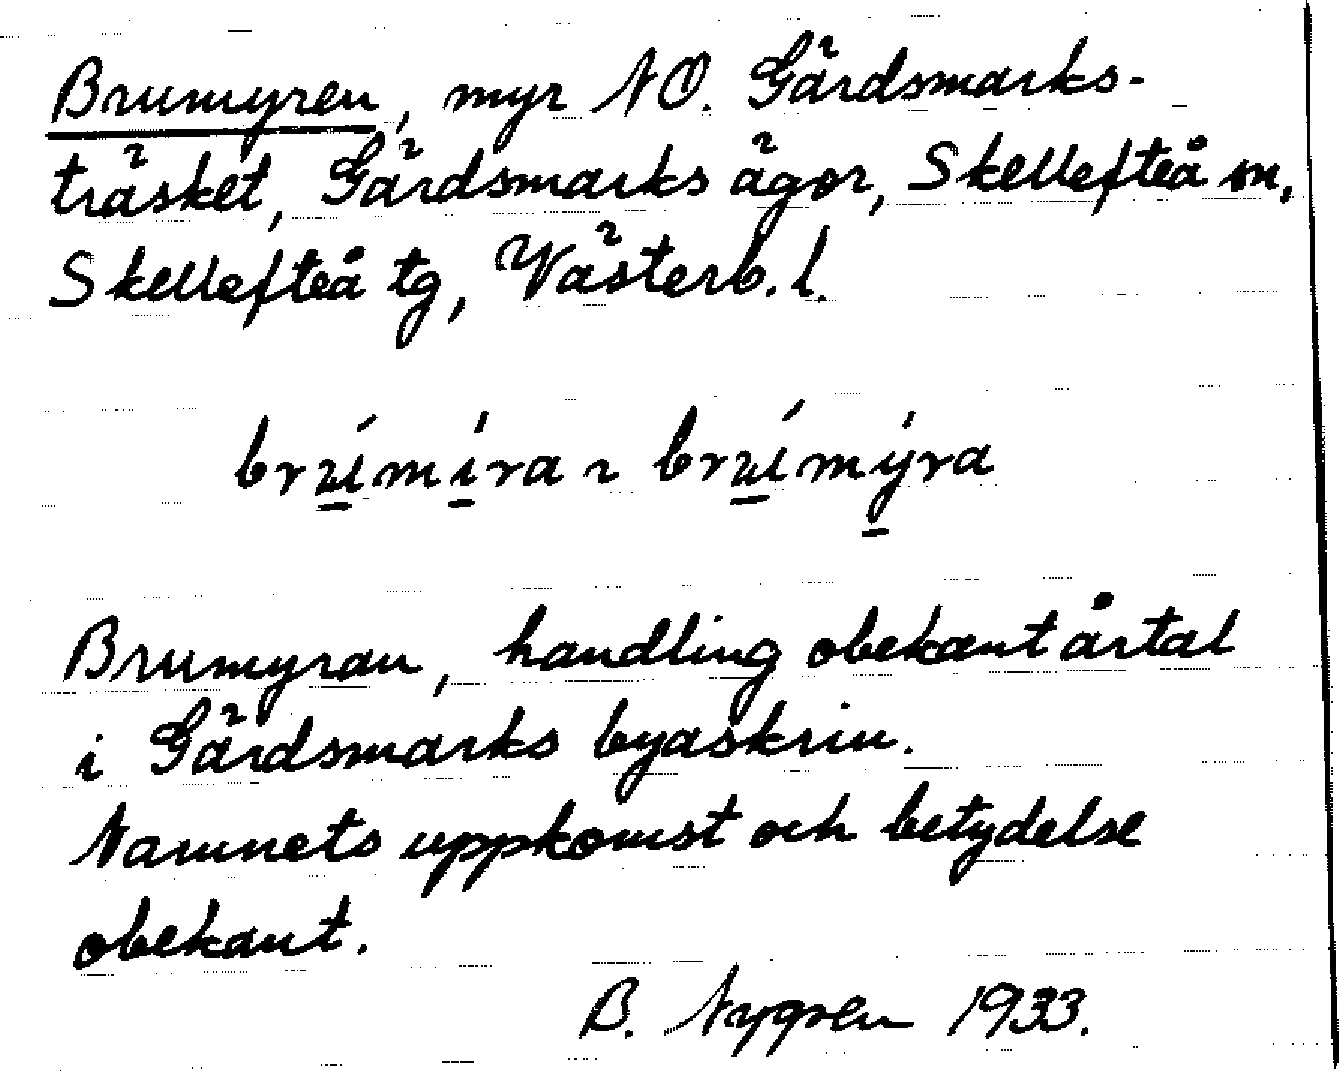 Brumyren, myr NO. Gärdsmarks-
träsket, Gärdsmarks ägor, Skellefteå sn,
Skellefteå tg, Västerb. l.
Brumyran, handling obekant årtal
i Gärdsmarks byaskrin.
Namnets uppkomst och betydelse
obekant.
B. Nygren 1933.